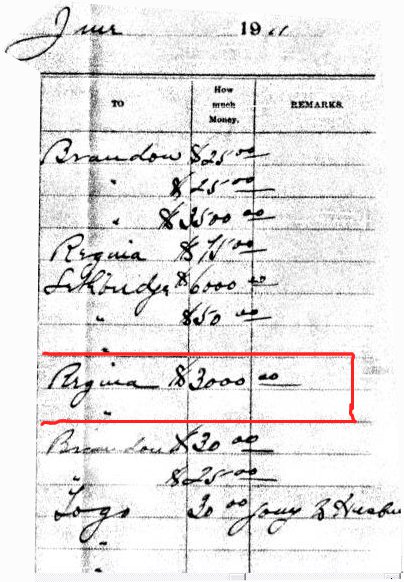 June 19 11
TO How much Money. REMARKS.
Brandon $25 00
" $25 00
" $3500 00
Regina $75 00
Lethbridge $6000 00
" $50 00
"
Regina $3000 00
"
Brandon $30 00
" $25 00
Togo 30 00
"
"